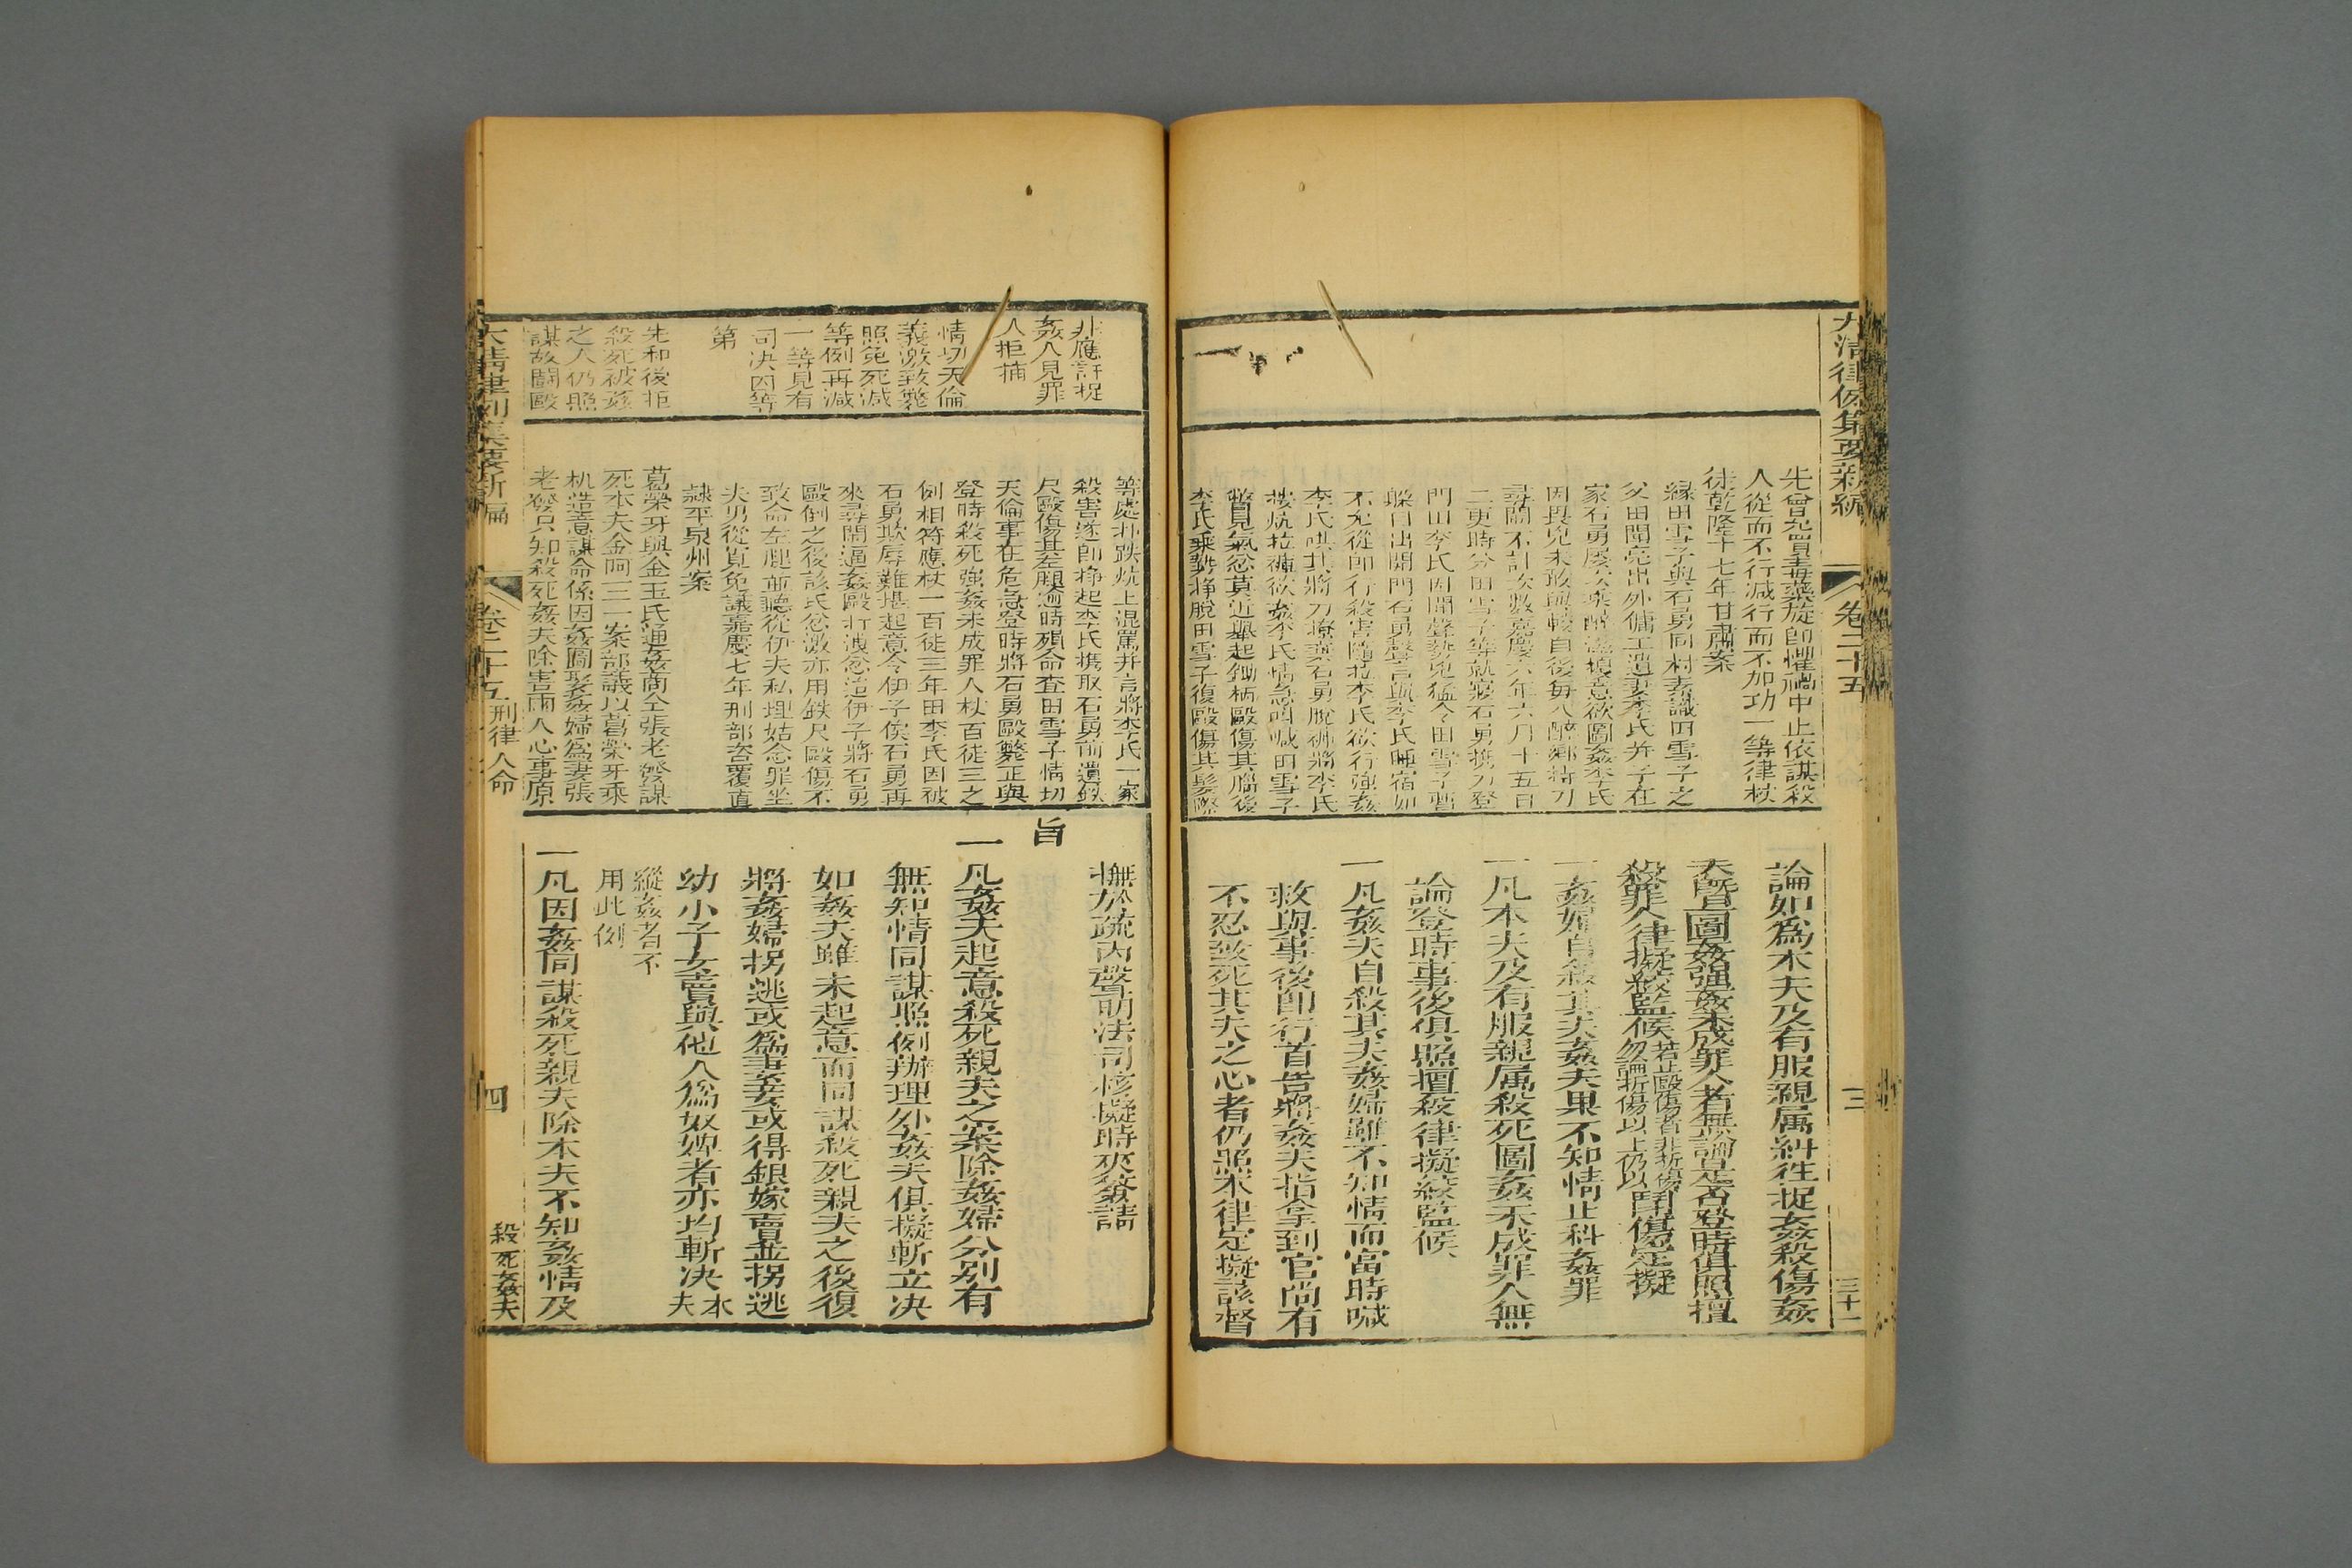 大清律例彙要新編
卷二十五
三
三十一
先曾起買毒藥旋卽懼禍中止依謀殺
人從而不行減行而不加功一等律杖
徒乾隆十七年甘肅案
緣田雪子與石勇同村素識田雪子之
父田聞亮出外傭工遺妻李氏幷子在
家石勇屢次乘醉混擾意欲圖姦李氏
因畏兇未敢與較自後每入醉鄉持刀
尋鬧不計次數嘉慶六年六月十五日
二更時分田雪子等就寢石勇携刀登
門山李氏因聞聲勢兇猛令田雪子暫
躱自出開門石勇聲言與李氏睡宿如
不允從卽行殺害隨拉李氏欲行强姦
李氏哄其將刀撩棄石勇脫褲將李氏
按炕拉褲欲姦李氏情急叫喊田雪子
瞥見氣忿莫近攝起鋤柄毆傷其腦後
李氏乘勢掙脫田雪子復毆傷其髮際
論如爲本夫及有服親属糾往捉姦殺傷姦
夫曁圖姦强姦未成罪人者無論是否登時俱照擅
殺罪人律擬絞監候若止毆傷者非折傷勿論折傷以上仍以鬪傷定擬
一姦婦自殺其夫姦夫果不知情止科姦罪
一凡本夫及有服親属殺死圖姦未成罪人無
論登時事後俱照擅殺律擬絞監候
一凡姦夫自殺其夫姦婦雖不知情而當時喊
救與事後卽行首告將姦夫指拿到官尚有
不忍致死其夫之心者仍照本律定擬該督
非應許捉
姦人見罪
人拒捕
情切天倫
義激致斃
照免死減
等例再減
一等見有
司決囚等
第
先和後拒
殺死被姦
之人仍照
謀故鬪毆
等處扑跌炕上混罵幷言將李氏一家
殺害遂卽掙起李氏携取石勇前遺鉄
尺毆傷其左腿逾時殞命查田雪子情切
天倫事在危急登時將石勇毆斃正與
登時殺死强姦未成罪人杖百徒三之
例相符應杖一百徒三年田李氏因被
石勇欺辱難堪起意令伊子俟石勇再
來尋鬧逼姦毆打洩忿迨伊子將石勇
毆倒之後該氏忿激亦用鉄尺毆傷不
致命左腿並聽從伊夫私埋姑念罪坐
夫男從寬免議嘉慶七年刑部咨覆直
隷平泉州案
葛榮牙與金王氏通姦商仝張老發謀
死本夫金阿三一案部議以葛榮牙乘
机造意謀命係因姦圖娶姦婦爲妻張
老發只知殺死姦夫除害兩人心事原
撫於疏內聲明法司核擬時夾簽請
旨
一凡姦夫起意殺死親夫之案除姦婦分别有
無知情同謀照例辦理外姦夫俱擬斬立決
如姦夫雖未起意而同謀殺死親夫之後復
將姦婦拐逃或爲妻妾或得銀嫁賣並拐逃
幼小子女賣與他人爲奴婢者亦均斬決本夫
縱姦者不
用此例
一凡因姦同謀殺死親夫除本夫不知姦情及
大清律例彙要新編
卷二十五刑律人命
四
殺死姦夫